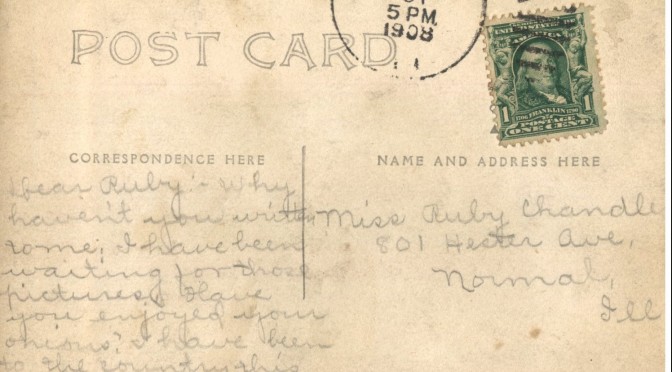 5 PM
1908
POST CARD
UNITED STATES OF AMERICA
1706 FRANKLIN 1790
1 1
POSTAGE
ONE CENT
CORRESPONDENCE HERE
NAME AND ADDRESS HERE
Dear Ruby:- Why
haven't you written
some; I have been
waiting for those
pictures. Have
you enjoyed your
onions? I have been
to the country this
Miss Ruby Chandle
801 Hester Ave,
Normal,
Ill